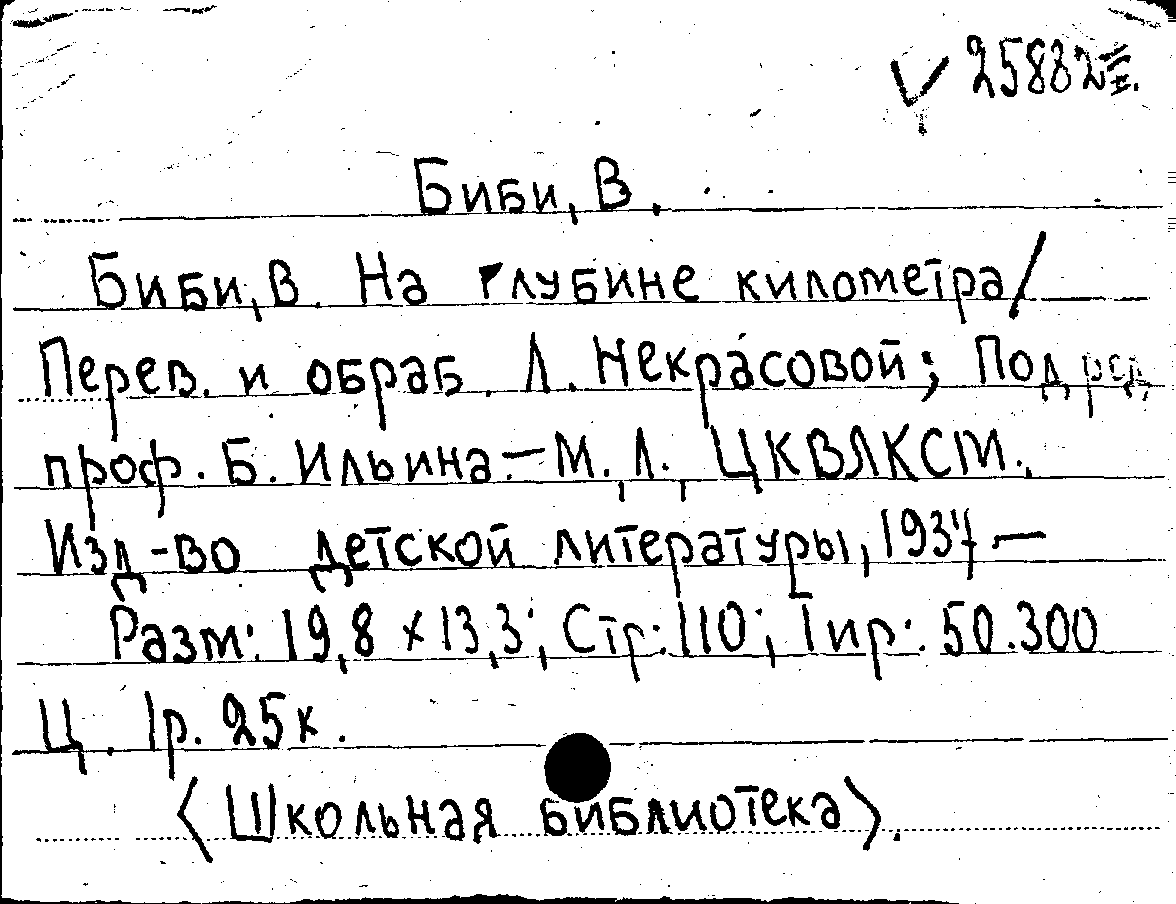 25882
Биби, В.
Биби, В. На глубине километра/
Перев. и обраб. Л. Некрасовой; Под ред
проф. Б. Ильина.—М., Л., ЦКВЛКСМ.,
Изд-во детской литературы, 1937.—
Разм: 19,8 x 13,3; Стр: 110; Тир: 50.300
Ц. 1р. 25к.
<Школьная библиотека>.